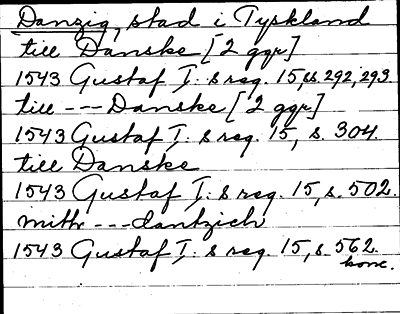 Danzig, stad i Tyskland
till Danske [2 ggr]
1543 Gustaf I:s reg. 15, ss. 292, 293
till --- Danske [2 ggr]
1543 Gustaf I:s reg. 15, s. 304.
till Danske
1543 Gustaf I:s reg. 15, s. 502.
mith --- dantzich
1543 Gustaf I:s reg. 15, s. 562.
konc.